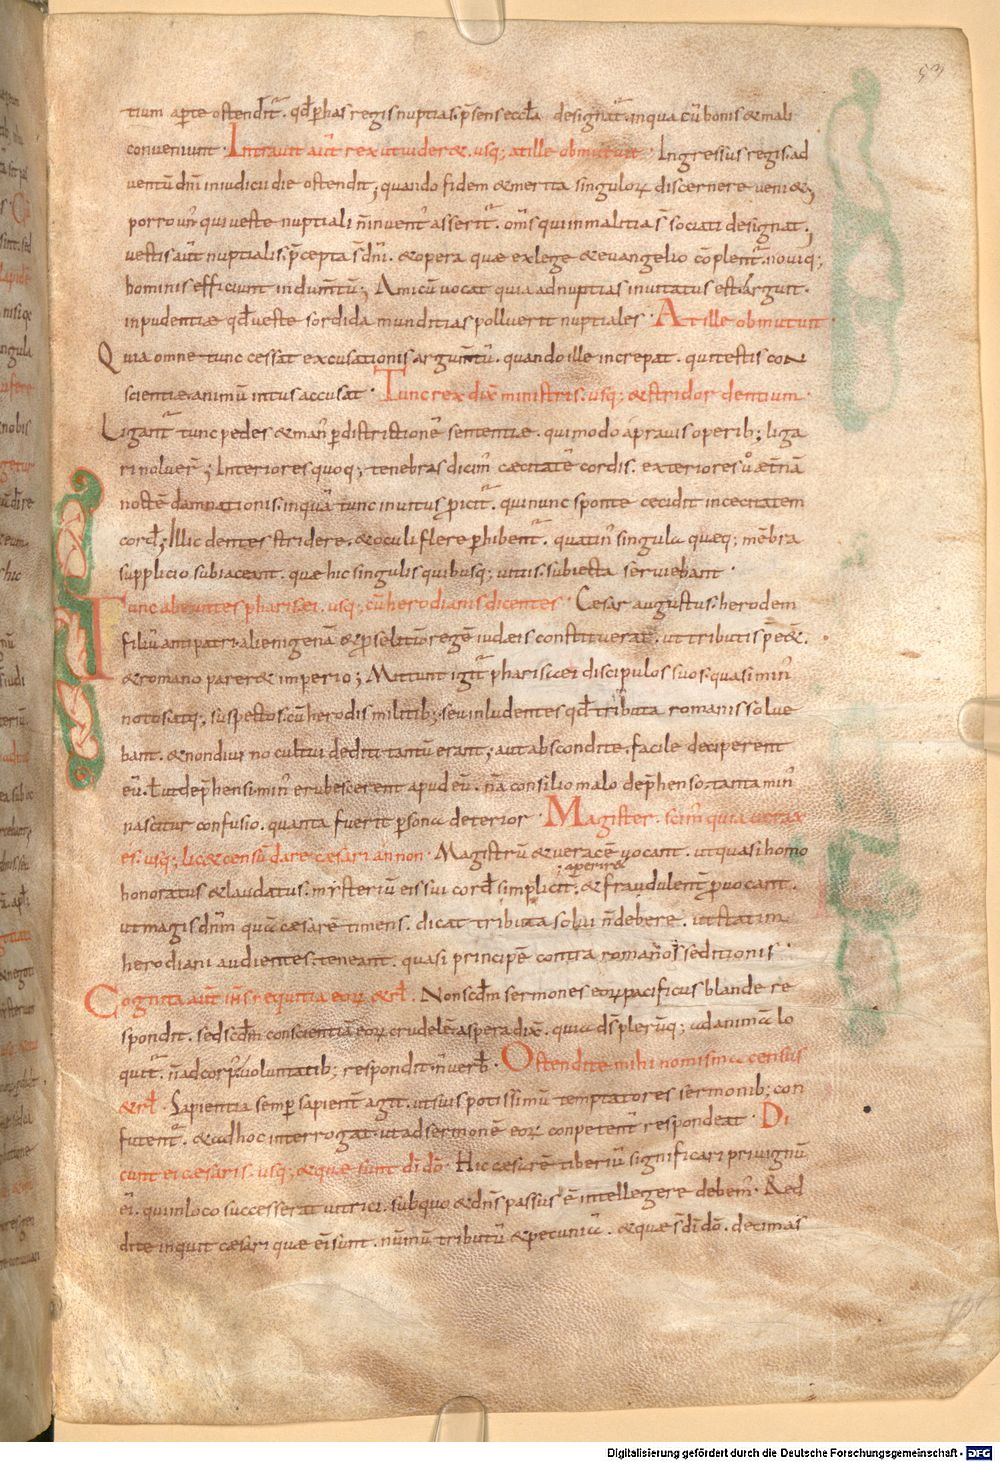 53
tium aꝑte ostendit᷑. qđ ꝑ has regis nuptias. p̄sens eccła designat᷑. in qua cū bonis & mali
conveniunt. Intravit aūt rex ut vider&. usq; at ille obmutuit. Ingressus regis. ad
ventū dn̄i in iudicii die ostendit; quando fidem & merita singuloꝝ discernere veni&;
porro un̄ qui veste nuptiali n̄ invent᷑ asserit᷑. om̄s qui in malitia s̄ sociati designat.
vestis aūt nuptialis. p̄cepta s̄ dn̄i. & opera quæ ex lege & evangelio cōplent᷑. novūq;
hominis efficiunt indumtū; Amicū vocat quia ad nuptias invitatus est. Arguit.
inpudentiæ qđ veste sordida munditias polluerit nuptiales. At ille obmutuit.
Quia omne tunc cessat excusationis argumtū. quando ille increpat. qui testis con
scientiæ animū intus accusat. Tunc rex dix̄ ministris. usq; & stridor dentium.
Ligant᷑ tunc pedes & man̄ ꝑ districtionē sententiæ. qui modo a pravis operib; liga
ri noluer̄; Interiores quoq; tenebras dicim̄ cæcitatē cordis. exteriores ů æt̄nā
noctē damnationis. in quā tunc invitus ꝓicit᷑. qui nunc sponte cecidit in cecitatem
cord̄; Illic dentes stridere. & oculi flere ꝑhibent᷑. quatin̄ singula queq; mēbra
supplicio subiaceant. quæ hic singulis quibusq; vitiis. subiecta serviebant.
Tunc abeuntes pharisæi. usq; cū herodianis dicentes. Cæsar augustus. herodem
filiū antipatri. alienigenā & ꝓselitū. regē iudæis constituerat. ut tributis p̄e&.
& romano parer& imperio; Mittunt igit᷑ pharisæi discipulos suos. quasi min̄
notos atq; suspectos. cū herodis militib; seu inludentes qđ tributa romanis solve
bant. & non divino cultui dediti tantū erant; aut abscondite. facile deciperent
eū. ł ut dep̄hensi. min̄ erubescerent apud eū. nā consilio malo dep̄henso. tanta min̄
nascitur confusio. quanta fuerit ꝑsona deterior. Magister. scim̄ quia verax
es. usq; lic& censū dare cæsari an non. Magistrū & veracē vocant. ut quasi homo
aperire
honoratus & laudatus. mysteriū eis sui cord̄ simplicit᷑; & fraudulent᷑ ꝓvocant.
ut magis dn̄m quā cæsarē timens. dicat tributa solvi n̄ debere. ut statim
herodiani audientes. teneant. quasi principē contra romanos seditionis.
Cognita aūt ih̄s nequitia eoꝝ & rł. Non scd̄m sermones eoꝝ pacificus blande re
spondit. sed scd̄m conscientiā eoꝝ crudelē aspera dix̄. quia dš plerūq; ad animā lo
quit᷑. n̄ ad corp̄. voluntatib; respondit. n̄ verb̄. Ostendite mihi nomisma census
& rł. Sapientia semꝑ sapient᷑ agit. ut sui potissimū temptatores sermonib; con
futent᷑. & ad hoc interrogat. ut ad sermonē eoꝝ conpetent᷑ respondeat. Di
cunt ei cæsaris. usq; & quæ sunt dī dō. Hic cæsarē tiberiū significari privignū
ei. qui in loco successerat vitrici. sub quo & dn̄s passus ē intellegere debem̄. Red
dite inquit cæsari quæ ei sunt. nūmū tributū & pecuniā. & quæ s̄ dī dō. decimas
Digitalisierung gefördert durch die Deutsche Forschungsgemeinschaft - DFG